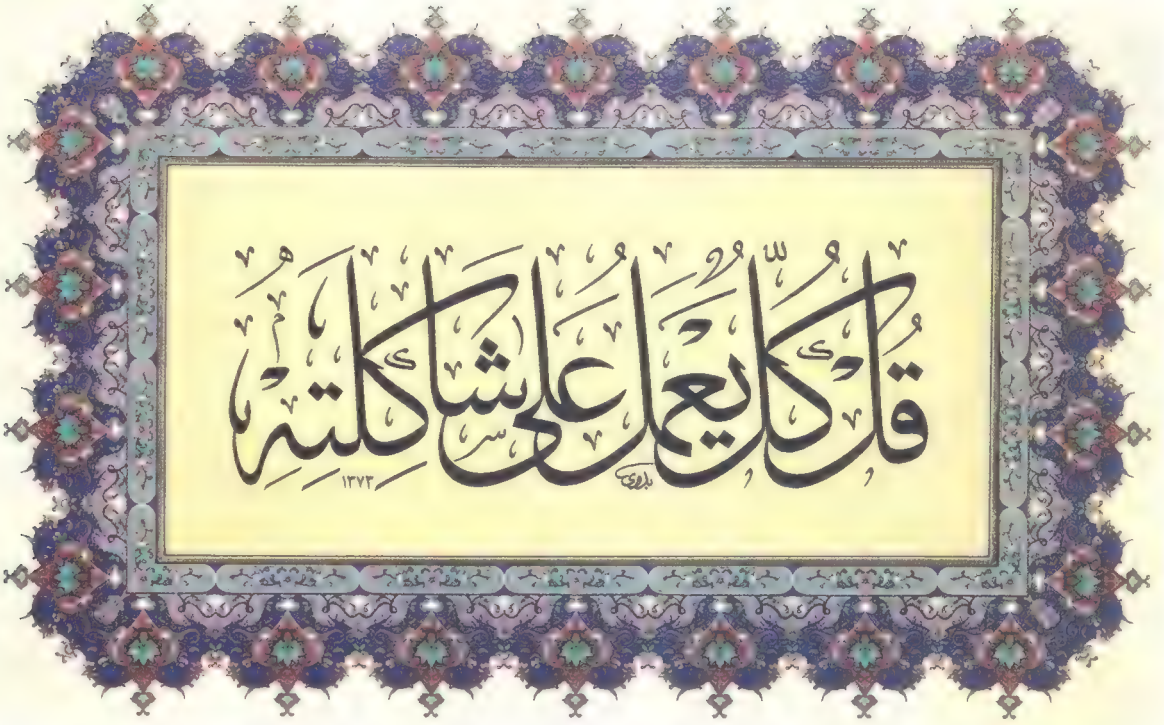 قُلْ كُلٌّ يَعْمَلُ عَلَى شَاكِلَتِهِ
بدوى
١٣٧٣